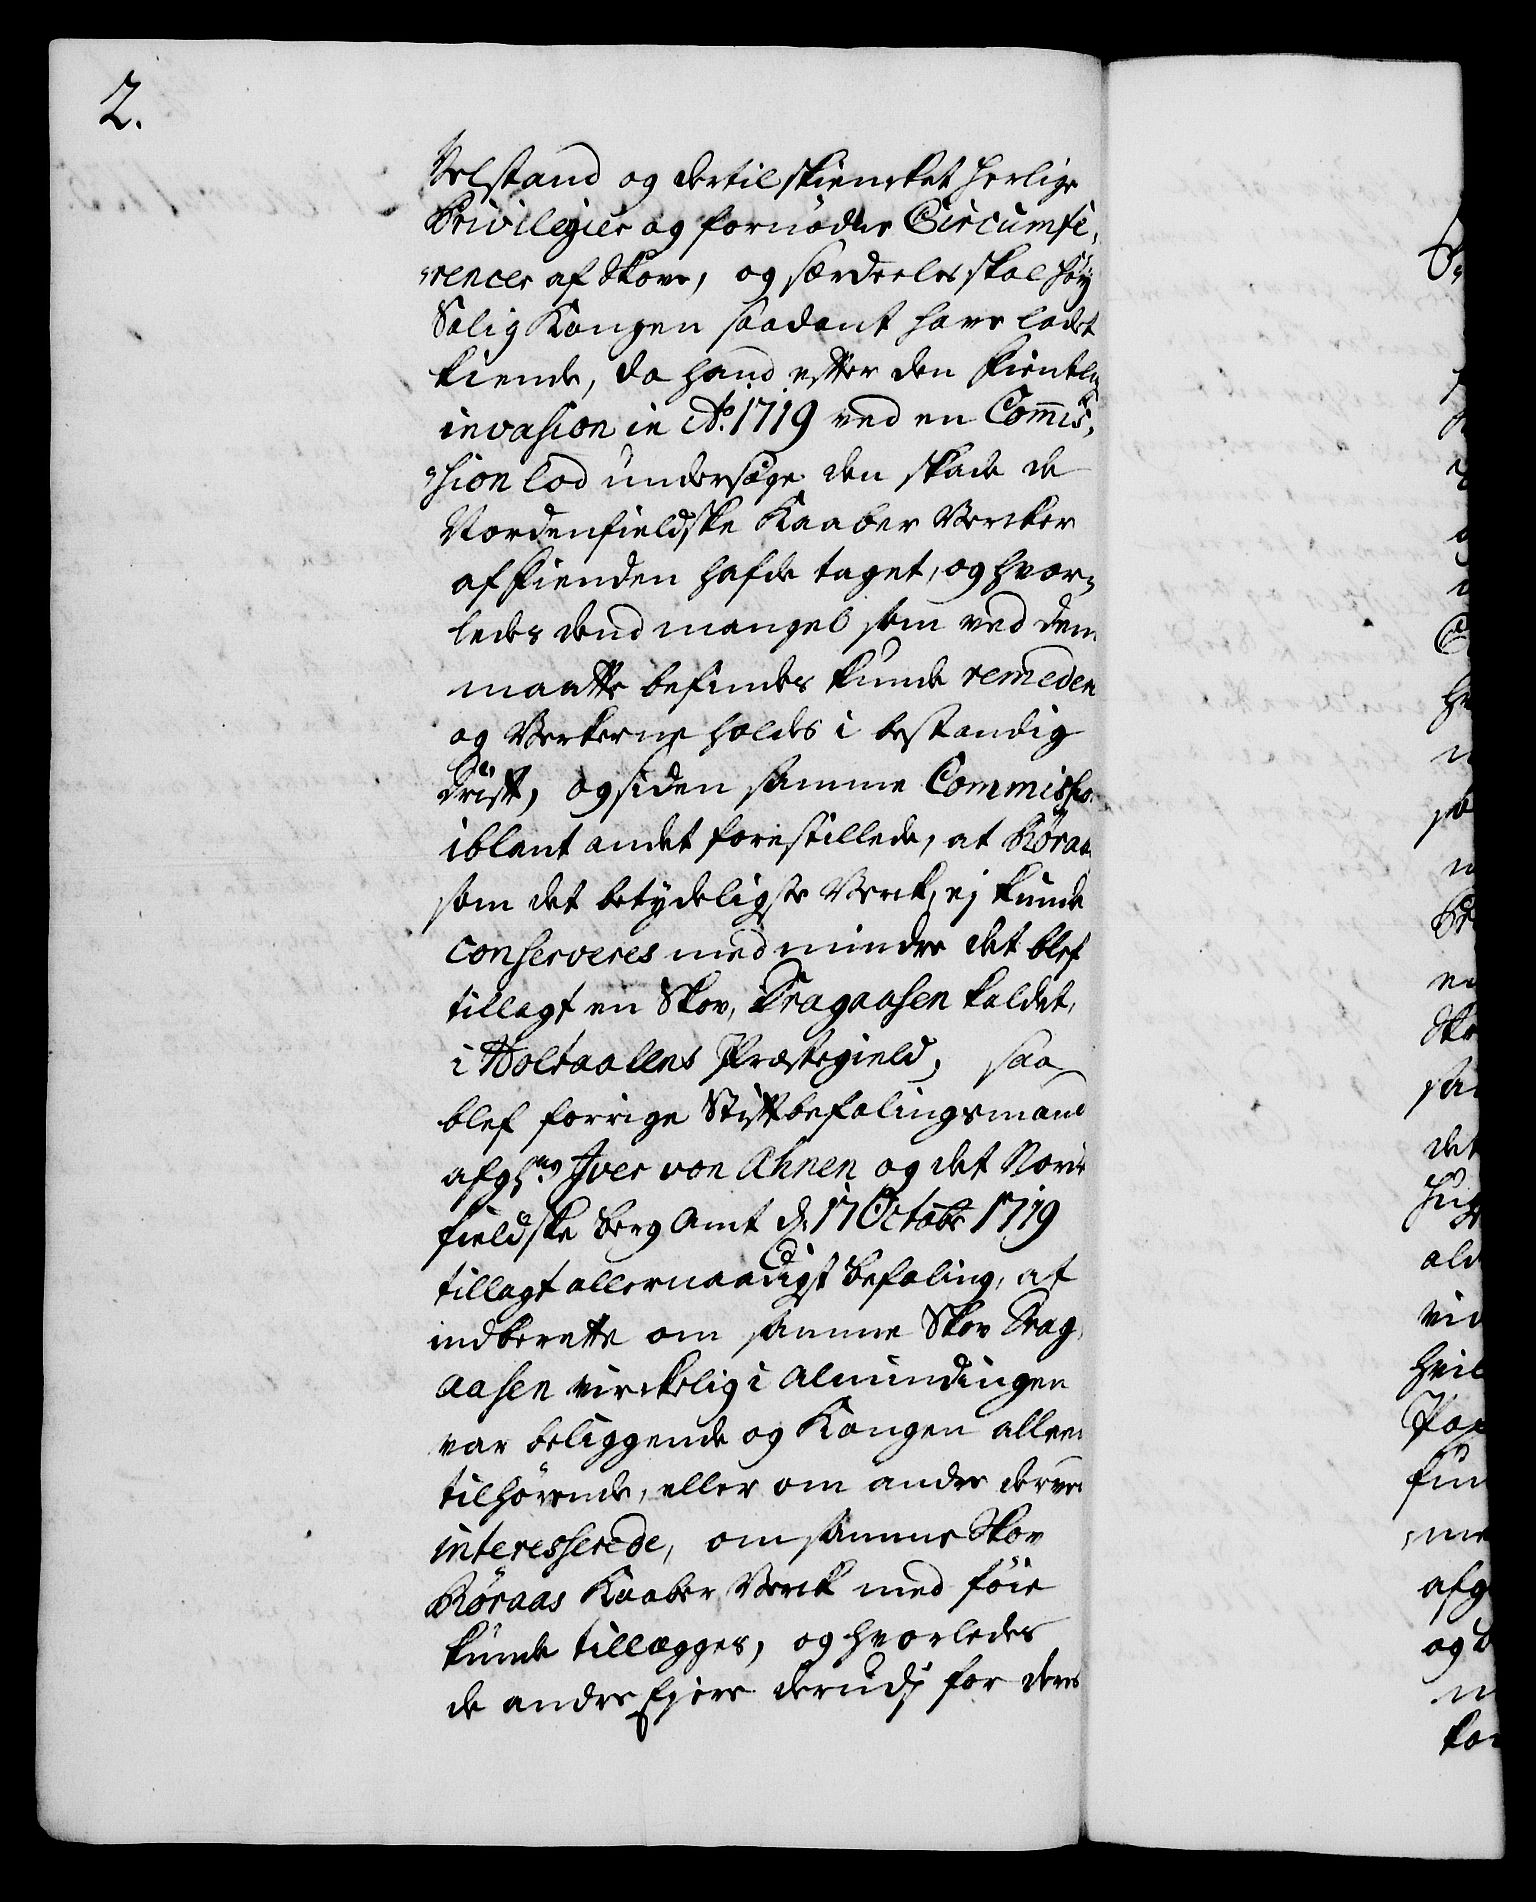 2.
Velstand og dertil skiencket herlige
Privilegier og fornöden Circumfe,
"rencer af Skove, og særdeeles skal Höy
Salig Kongen saadant have ladet
kiende, da hand efter den fientlig
invasion in Ao. 1719 ved en Commis,
"sion lod undersöge den skade de
Nordenfieldske Kaaber Vercker
af fienden hafde taget, og hvor-
ledes dend mangel som ved dem
maatte befindes kunde remeden
og Verkerne holdes i bestandig
Drift, og siden samme Commissio
iblant andet forestillede, at Röraas
som det betydeligste Verck, ej kunde
conserveres med mindre det blef
tillagt en Skov, Dragaasen kaldet,
i Holtaalens Præstegield, saa
blef forrige Stiftbefalingsmand
afgangne Iver von Ahnen og det Norde
fieldske Berg Amt d. 17 Octobr 1719
tillagt allernaadigst befaling, at
indberette om samme Skov Drag,
aasen virckelig i Almindingen
var beliggende og Kongen alleen
tilhörende, eller om andre derved
interesserede, om samme Skov
Röraas Kaaber Verck med föie
kunde tillægges, og hvorledes
de andre Ejere derudj for deres